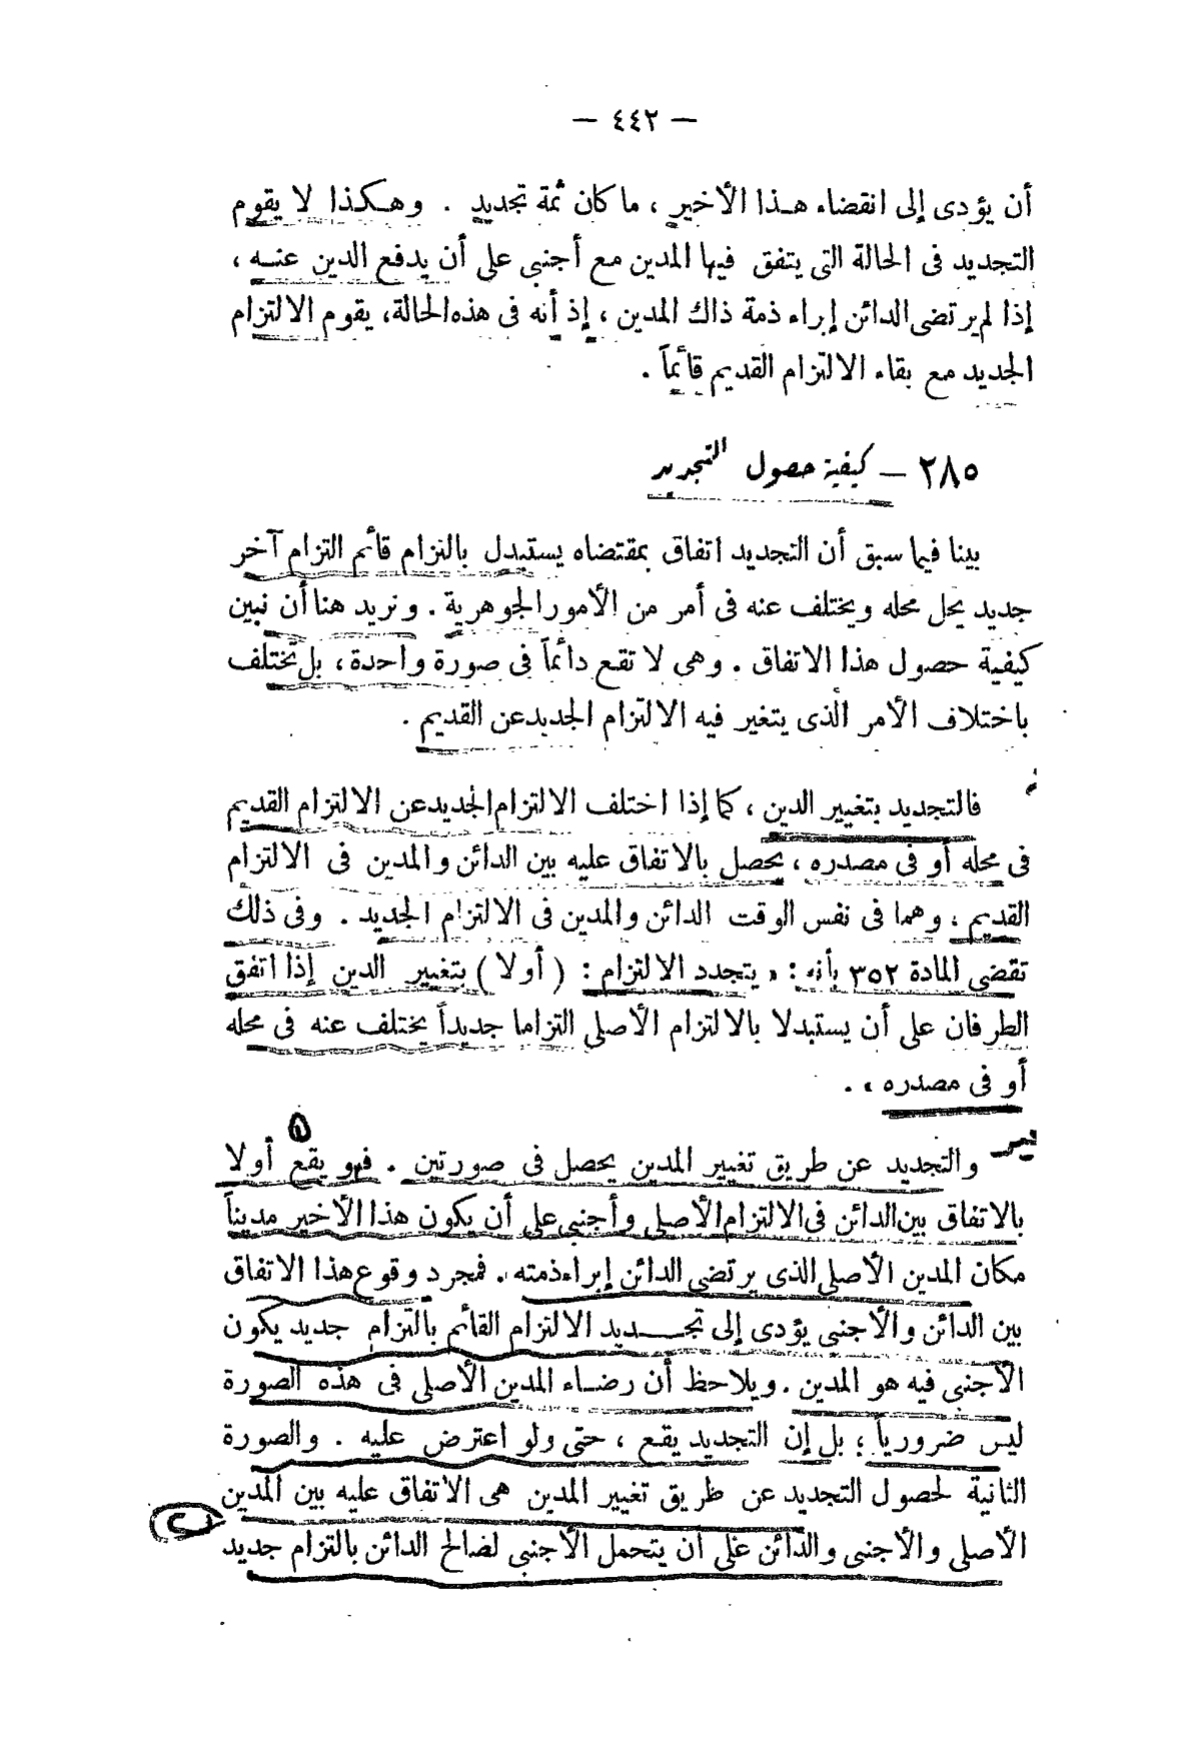 — ٤٤٢ —
أن يؤدى إلى انقضاء هذا الأخير ، ما كان ثمة تجديد . وهكذا لا يقوم
التجديد فى الحالة التى يتفق فيها المدين مع أجنبى على أن يدفع الدين عنه ،
إذا لم يرتضى الدائن إبراء ذمة ذاك المدين ، إذ أنه فى هذه الحالة، يقوم الالتزام
الجديد مع بقاء الالتزام القديم قائماً .
٢٨٥ – كيفية حصول التجديد
بينا فيما سبق أن التجديد اتفاق بمقتضاه يستبدل بالتزام قائم التزام آخر
جديد يحل محله ويختلف عنه فى أمر من الأمور الجوهرية . ونريد هنا أن نبين
كيفية حصول هذا الاتفاق . وهى لا تقع دائماً فى صورة واحدة، بل تختلف
باختلاف الأمر الذى يتغير فيه الالتزام الجديد عن القديم .
فالتجديد بتغيير الدين ، كما إذا اختلف الالتزام الجديد عن الالتزام القديم
فى محله أو فى مصدره ، يحصل بالاتفاق عليه بين الدائن والمدين فى الالتزام
القديم ، وهما فى نفس الوقت الدائن والمدين فى الالتزام الجديد . وفى ذلك
تقضى المادة ٣٥٢ بأنه : « يتجدد الالتزام : ( أولا ) بتغيير الدين إذا اتفق
الطرفان على أن يستبدلا بالالتزام الأصلى التزاما جديداً يختلف عنه فى محله
أو فى مصدره » .
١
والتجديد عن طريق تغيير المدين يحصل فى صورتين . فهو يقع أولا
بالاتفاق بين الدائن فى الالتزام الأصلى وأجنبى على أن يكون هذا الأخير مديناً
مكان المدين الأصلى الذى يرتضى الدائن إبراء ذمته . فمجرد وقوع هذا الاتفاق
بين الدائن والأجنبى يؤدى إلى تجديد الالتزام القائم بالتزام جديد يكون
الأجنبى فيه هو المدين . ويلاحظ أن رضاء المدين الأصلى فى هذه الصورة
ليس ضرورياً ؛ بل إن التجديد يقع ، حتى ولو اعترض عليه . والصورة
الثانية لحصول التجديد عن طريق تغيير المدين هى الاتفاق عليه بين المدين
٢
الأصلى والأجنبى والدائن على أن يتحمل الأجنبى لصالح الدائن بالتزام جديد